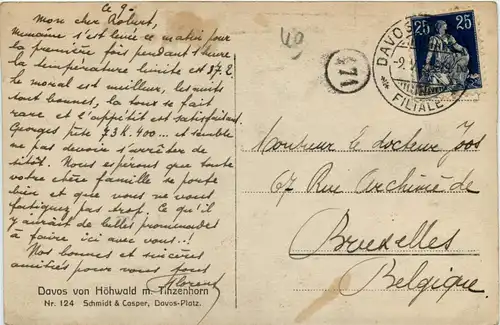 Le 9.
Mon cher Robert,
s'est levée ce matin pour
la première fois pendant 1 heure
la température limite est 37.2.
Le moral est meilleur, les nuits
sont bonnes, la toux se fait
rare et l'appétit est satisfaisant.
Georges pèse 73 K. 400 ... et semble
ne pas devoir s'arrêter de
sitôt. Nous espérons que toute
votre chère famille se porte
bien et que vous ne vous
fatiguez pas trop. Ce qu'il
y aurait de belles promenades
à faire ici avec vous..!
Nos bonnes et sincères
amitiés pour vous tous
Florent
Davos von Höhwald m. Tinzenhorn
Nr. 124 Schmidt & Casper, Davos-Platz.
49
471
25 25
DAVOS
FILIALE
Monsieur le docteur Joos
67 Rue Archimède
Bruxelles
Belgique.